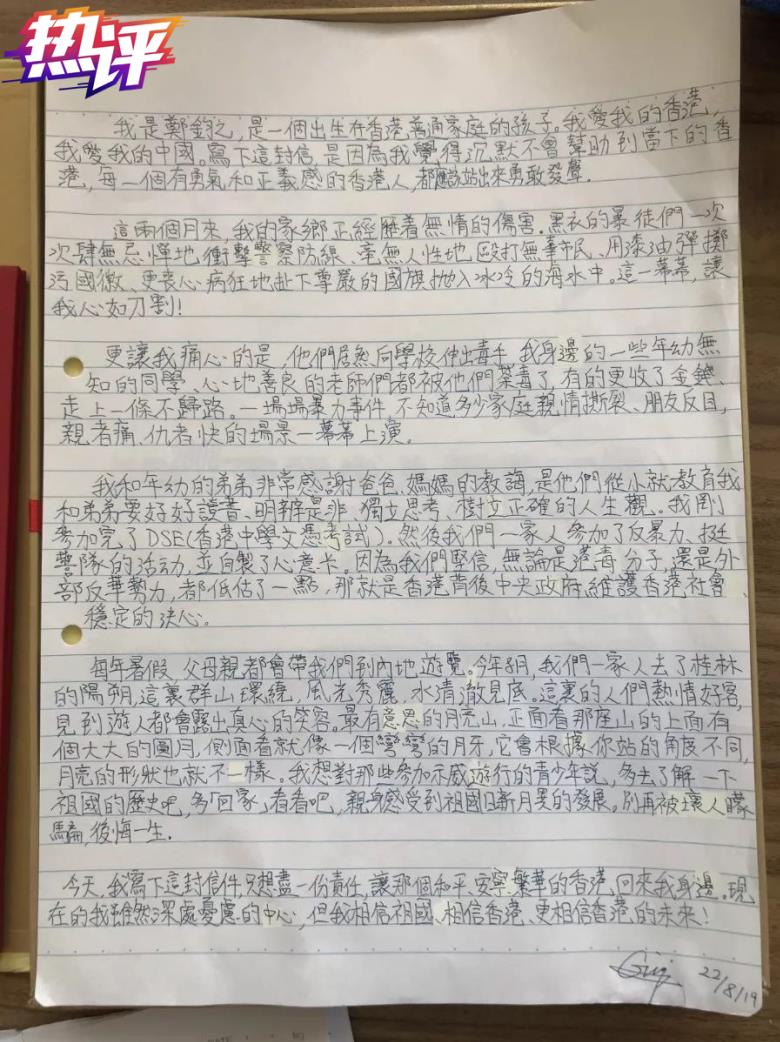 热评
我是鄭鈞之,是一個出生在香港普通家庭的孩子。我愛我的香港,
我愛我的中國。寫下這封信,是因為我覺得沉默不會幫助到當下的香
港,每一個有勇氣和正義感的香港人,都應該站出來勇敢發聲.
這兩個月來,我的家鄉正經歷着無情的傷害.黑衣的暴徒們一次
次肆無忌憚地衝擊警察防線、毫無人性地毆打無辜市民、用漆油彈擲
污國徽、更喪心病狂地扯下尊嚴的國旗拋入冰冷的海水中。這一幕幕,讓
我心如刀割!
更讓我痛心的是,他們居然向學校伸出毒手.我身邊的一些年幼無
知的同學、心地善良的老師們都被他們荼毒了,有的更收了金錢、
走上一條不歸路。一場場暴力事件,不知道多少家庭親情撕裂、朋友反目,
親者痛、仇者快的場景一幕幕上演。
我和年幼的弟弟非常感謝爸爸、媽媽的教誨,是他們從小就教育我
和弟弟要好好讀書、明辨是非、獨立思考、樹立正確的人生觀。我剛
參加完了DSE(香港中學文憑考試).然後我們一家人參加了反暴力、挺
警隊的活動,並自製了心意卡。因為我們堅信,無論是港毒分子,還是外
部反華勢力,都低估了一點,那就是香港背後中央政府維護香港社會、
穩定的決心。
每年暑假,父母親都會帶我們到內地遊覽。今年8月,我們一家人去了桂林
的陽朔,這裏群山環繞,風光秀麗,水清澈見底。這裏的人們熱情好客,
見到遊人都會露出真心的笑容。最有意思的月亮山,正面看那座山的上面有
個大大的圓月,側面看就像一個彎彎的月牙,它會根據你站的角度不同,
月亮的形狀也就不一樣。我想對那些參加示威遊行的青少年說,多去了解一下
祖國的歷史吧,多「回家」看看吧,親身感受到祖國日新月異的發展。別再被壞人矇
騙,後悔一生.
今天,我寫下這封信件,只想盡一份責任,讓那個和平、安寧、繁華的香港,回來我身邊。現
在的我雖然深處憂慮的中心,但我相信祖國、相信香港、更相信香港的未來!
22/8/19